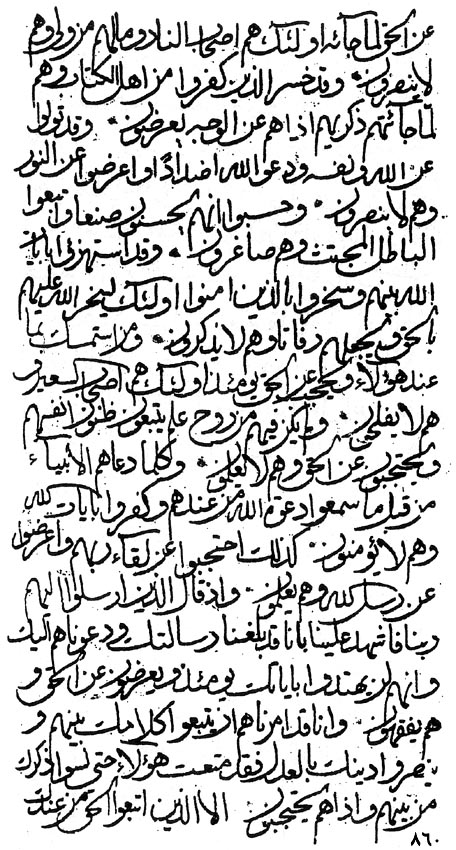 عن الحق لما جائه اولئك هم اصحاب النار و مالهم من ولی و هم
لا ینصرون و قد خسر الذین کفروا من اهل الکتاب و هم
لما جائتهم ذکریهم اذاهم عن الوجه یعرضون و قد تولوا
عن الله و نفسه و دعوا لله اضداداً و اعرضوا عن النور
و هم لا ینصرون و حسبوا انهم یحسنون صنعا و اتبعوا
الباطل المجتث و هم صاغرون و قد استهزئ بایات
الله بینهم و سخروا بالذین امنوا اولئک یسخر الله علیهم
بالحق و یجعلهم رفاتا و هم لا یذکرون و من استمسک بما
عند هؤلاء و یحتجب عن الحق یومئذ اولئک هم اصحاب السعیر و
هم لا یفلحون و لم یکن فیهم من روح علم یتبعون ظنون انفسهم
و یحتجبون عن الحق و هم لا یعلمون و کلما دعاهم الأنبیاء
من قبل ما سمعوا دعوة الله من عندهم و کفروا بایات الله
و هم لا یؤمنون کذلک احتجبوا عن لقاء ربهم و اعرضوا
عن رسل الله و هم یعلمون و اذ قال الذین ارسلوا الیهم
ربنا فاشهد علینا بانا قد بلغنا رسالتک و دعوناهم الیک
و انهم لن یهتدوا بایاتک یومئذ و یعرضون عن الحق و
هم یفقهون و انا قد امرناهم ان یتبعوا کلامک بینهم و
ینصروا دینک بالعدل فقد متعت هؤلاء حتی نسوا ذکرک
من بینهم و اذاهم یحتجبون الا الذین اتبعوا الحق من عندک
٨٦٠